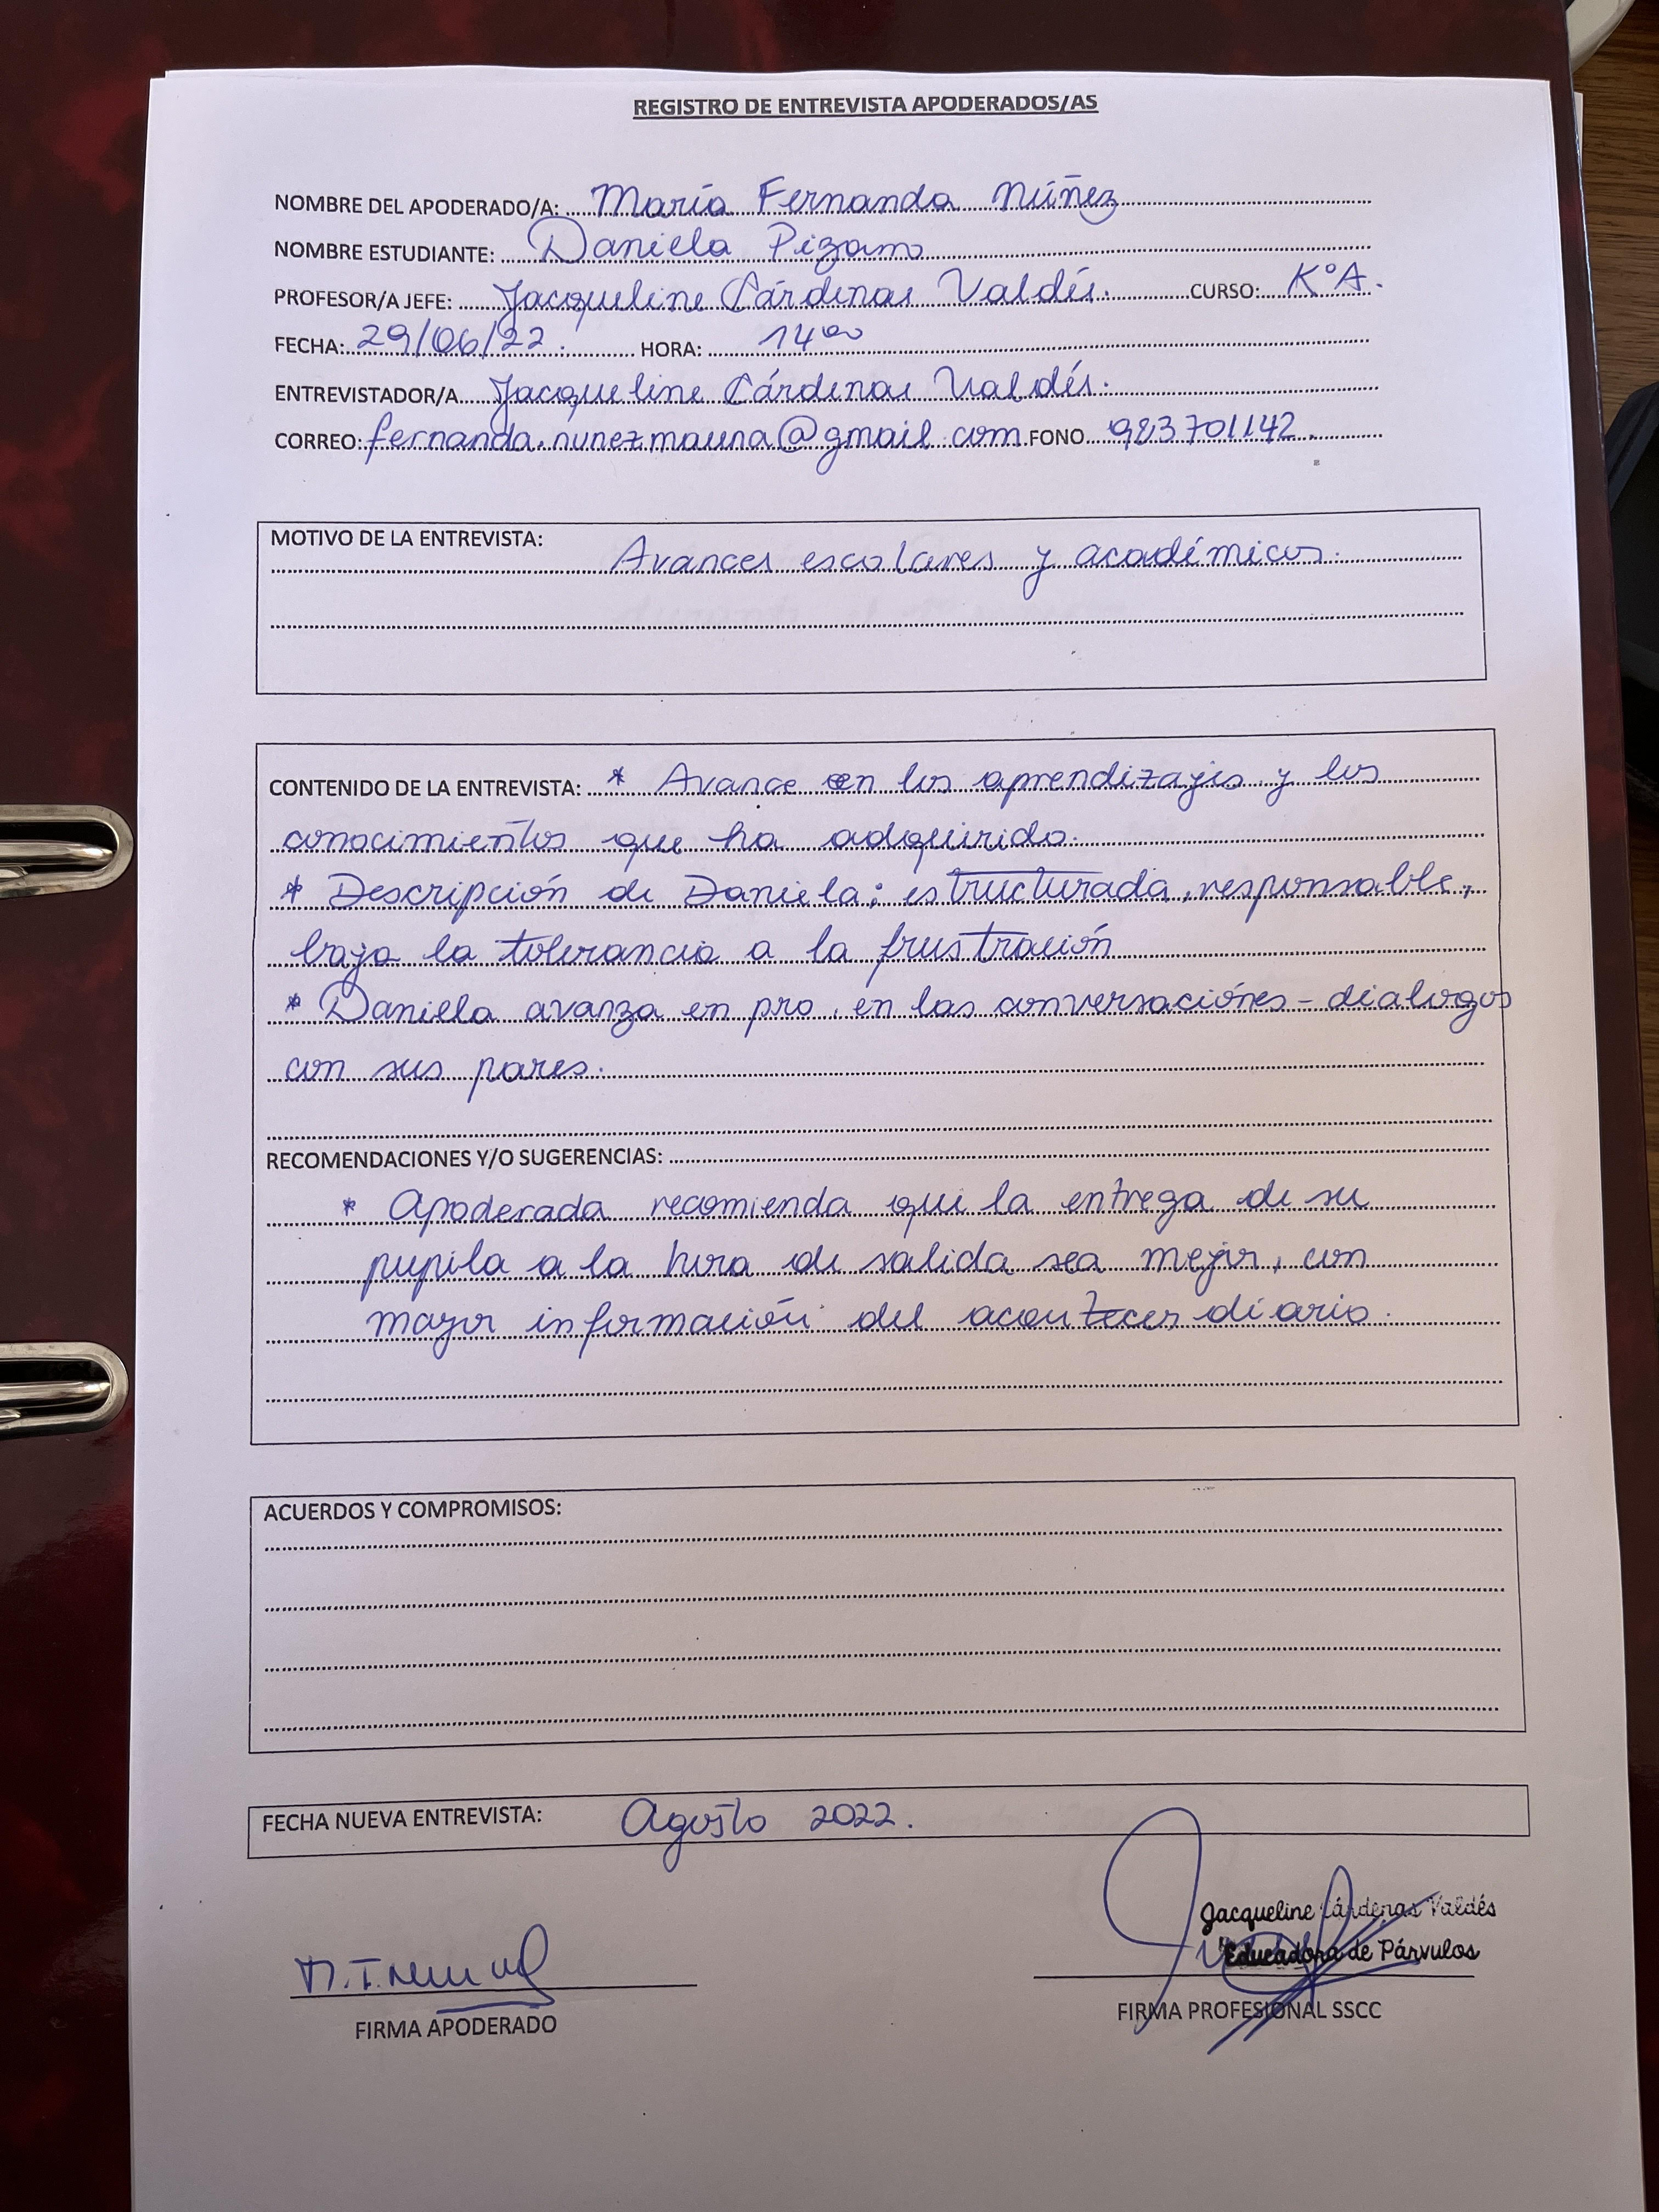 REGISTRO DE ENTREVISTA APODERADOS/AS
NOMBRE DEL APODERADO/A: María Fernanda Núñez
NOMBRE ESTUDIANTE: Daniela Pizarro
PROFESOR/A JEFE: Jacqueline Cárdenas Valdés. CURSO: K°A.
FECHA: 29/06/22. HORA: 14:00
ENTREVISTADOR/A Jacqueline Cárdenas Valdés.
CORREO: fernanda.nunezmauna@gmail.com FONO 983701142.
MOTIVO DE LA ENTREVISTA:
Avances escolares y académicos.
CONTENIDO DE LA ENTREVISTA: * Avance en los aprendizajes y los
conocimientos que ha adquirido.
* Descripción de Daniela; estructurada, responsable,
baja la tolerancia a la frustración
* Daniela avanza en pro, en las conversaciónes - dialogos
con sus pares.
RECOMENDACIONES Y/O SUGERENCIAS:
* Apoderada recomienda que la entrega de su
pupila a la hora de salida sea mejor, con
mayor información del acontecer diario.
ACUERDOS Y COMPROMISOS:
FECHA NUEVA ENTREVISTA: Agosto 2022.
Jacqueline Cárdenas Valdés
Educadora de Párvulos
FIRMA APODERADO
FIRMA PROFESIONAL SSCC